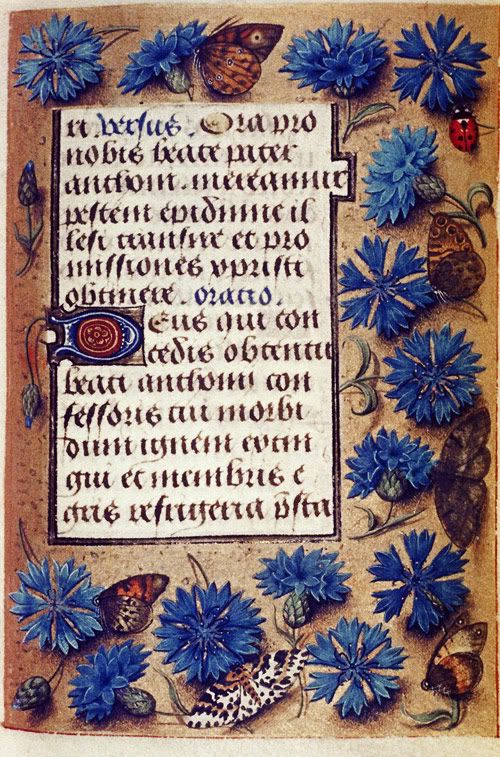 et versus. Ora pro
nobis beate pater
anthoni. mereamur
pestem epidimie il
lesi transire et pro
missiones xpristi
obtinere oratio.
Deus qui con
cedis obtentu
beati anthonii con
fessoris tui morbi
dum ignem extin
gui et membris e
gris refrigeria psta